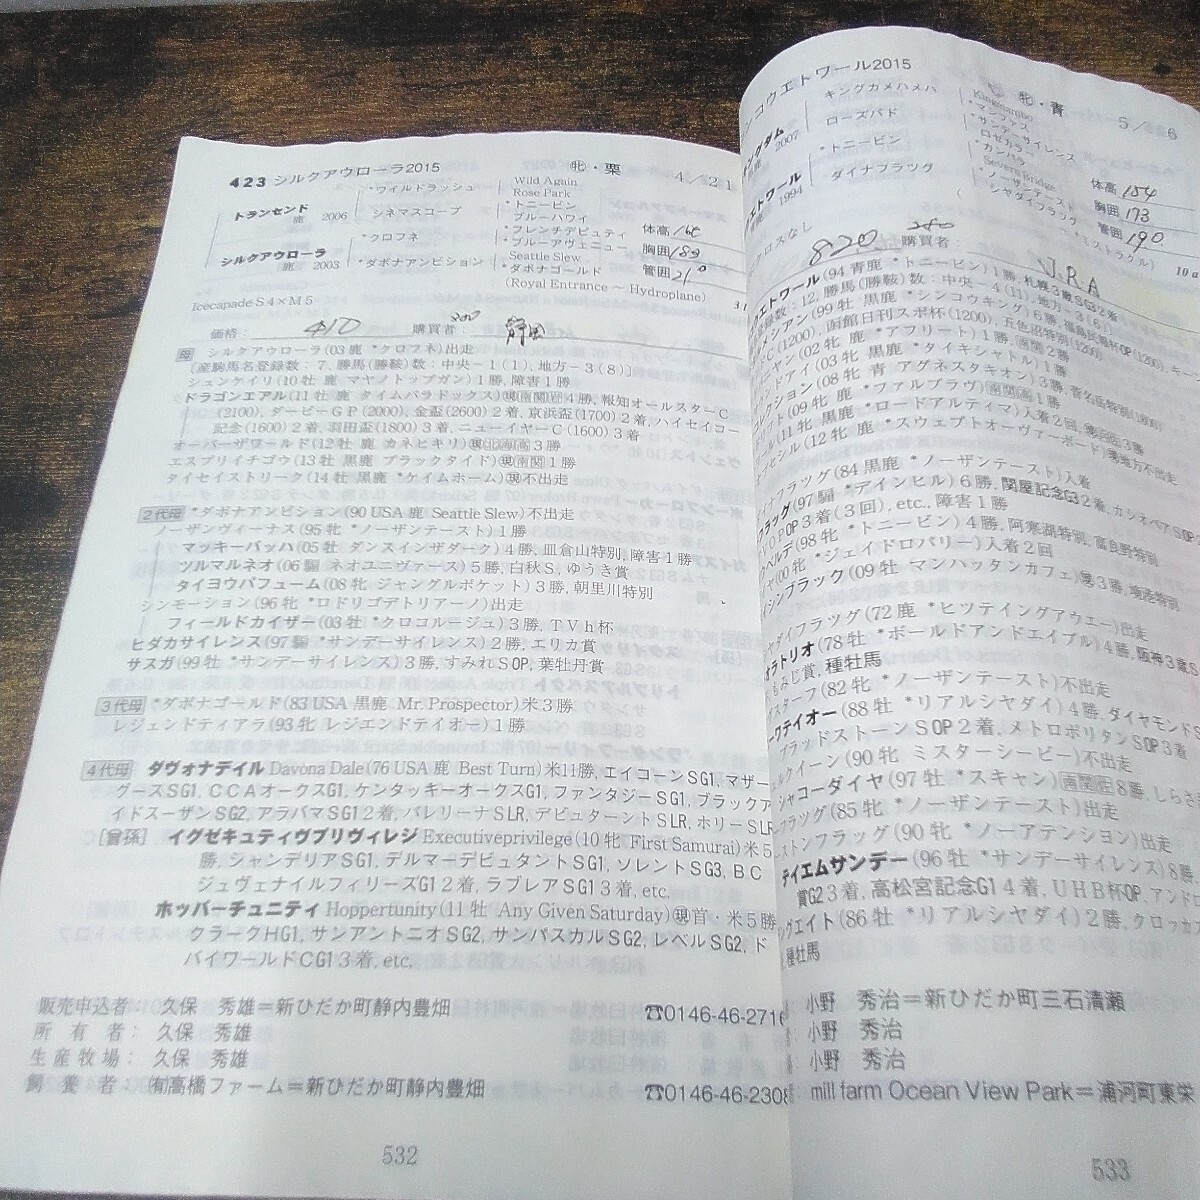 423 シルクアウローラ2015 牝・栗 4/21
トランセンド 鹿 2006
*ワイルドラッシュ
Wild Again
Rose Park
シネマスコープ
*トニービン
ブルーハワイ
シルクアウローラ 鹿 2003
*クロフネ
*フレンチデピュティ
*ブルーアヴェニュー
*ダボナアンビション
Seattle Slew
*ダボナゴールド
(Royal Entrance ~ Hydroplane)
体高
胸囲
管囲
Icecapade S4×M5
価格: 410 購買者:
母 シルクアウローラ(03鹿 *クロフネ)出走
[産駒馬名登録数:7, 勝馬(勝鞍)数:中央−1(1), 地方−3(8)]
シュンケイリ(10牡 鹿 マヤノトップガン)1勝, 障害1勝
ドラゴンエアル(11牡 鹿 タイムパラドックス)現南関囲4勝, 報知オールスターC
(2100), ダービーGP(2000), 金盃(2600)2着, 京浜盃(1700)2着, ハイセイコー
記念(1600)2着, 羽田盃(1800)3着, ニューイヤーC(1600)3着
オーバーザワールド(12牡 鹿 カネヒキリ)3勝
エスプリイチゴウ(13牡 黒鹿 ブラックタイド)現南関1勝
タイセイストリーク(14牡 黒鹿 *ケイムホーム)現不出走
2代母 *ダボナアンビション(90 USA鹿 Seattle Slew)不出走
ノーザンヴィーナス(95牝 *ノーザンテースト)1勝
マッキーバッハ(05牡 ダンスインザダーク)4勝, 皿倉山特別, 障害1勝
ツルマルネオ(06騸 ネオユニヴァース)5勝, 白秋S, ゆうき賞
タイヨウパフューム(08牝 ジャングルポケット)3勝, 朝里川特別
シンモーション(96牝 *ロドリゴデトリアーノ)出走
フィールドカイザー(03牡 *クロコルージュ)3勝, TVh杯
ヒダカサイレンス(97騸 *サンデーサイレンス)2勝, エリカ賞
サスガ(99牡 *サンデーサイレンス)3勝, すみれSOP, 葉牡丹賞
3代母 *ダボナゴールド(83 USA 黒鹿 Mr. Prospector)米3勝
レジェンドティアラ(93牝 レジエンドテイオー)1勝
4代母 ダヴォナデイル Davona Dale(76 USA鹿 Best Turn)米11勝, エイコーンSG1, マザー
グースSG1, CCAオークスG1, ケンタッキーオークスG1, ファンタジーSG1, ブラックア
イドスーザンSG2, アラバマSG12着, バレリーナSLR, デビュターントSLR, ホリーSLR
[曾孫] イグゼキュティヴプリヴィレジ Executiveprivilege(10牝 First Samurai)米5
勝, シャンデリアSG1, デルマーデビュタントSG1, ソレントSG3, BC
ジュヴェナイルフィリーズG12着, ラブレアSG13着, etc.
ホッパーチュニティ Hoppertunity(11牡 Any Given Saturday)現首・米5勝
クラークHG1, サンアントニオSG2, サンパスカルSG2, レベルSG2, ド
バイワールドCG13着, etc.
販売申込者: 久保 秀雄=新ひだか町静内豊畑 ☎0146-46-2716
所有者: 久保 秀雄
生産牧場: 久保 秀雄
飼養者: (有)高橋ファーム=新ひだか町静内豊畑 ☎0146-46-2308
532
コウエトワール2015 牝・青 5/6
キングカメハメハ
Kingmambo
*マンファス
ローズバド
*サンデーサイレンス
ロゼカラー
ングダム 鹿 2007
*トニービン
*カンパラ
Severn Bridge
ダイナフラッグ
*ノーザンテースト
シャダイフラッグ
エトワール 1994
体高 154
胸囲 173
管囲 190
クロスなし
820 購買者: J.R.A
エトワール(94青鹿 *トニービン)1勝, 札幌3歳SG32着
登録数:12, 勝馬(勝鞍)数:中央−4(11), 地方−3(6)]
メシアン(99牡 黒鹿 *シンコウキング)6勝, 福島民報杯OP(1200), キー
C(1200), 函館日刊スポ杯(1200), 五色沼特別(1200)
ヤン(02牝 鹿 *アフリート)1勝, 2勝
ンドアイ(03牝 黒鹿 *タイキシャトル)1勝
クション(08牝 青 アグネスタキオン)3勝
ット(09牝 鹿 *ファルブラヴ)南関高1勝
ル(11牝 黒鹿 *ロードアルティマ)入着2回
セシル(12牝 鹿 *スウェプトオーヴァーボード)現地方不出走
フラッグ(84黒鹿 *ノーザンテースト)入着
フラッグ(97騸 *アインヒル)6勝, 関屋記念G32着, カシオペアSOP
OP3着(3回), etc., 障害1勝
ベルテ(98牝 *トニービン)4勝, 阿寒湖特別, 富良野特別
(00牝 *ジェイドロバリー)入着2回
シンブラック(09牡 マンハッタンカフェ)3勝
ャダイフラッグ(72鹿 *ヒッティングアウェー)出走
オラトリオ(78牡 *ボールドアンドエイブル)4勝, 阪神3歳S
もみじ賞, 種牡馬
スターフ(82牝 *ノーザンテースト)不出走
ークテイオー(88牡 *リアルシヤダイ)4勝, ダイヤモンドS
ブラッドストーンSOP2着, メトロポリタンSOP3着
ルクイーン(90牝 ミスターシービー)不出走
シャコーダイヤ(97牡 *スキャン)8勝, しらさ
フラッグ(85牝 *ノーザンテースト)出走
ストンフラッグ(90牝 *ノーアテンション)出走
テイエムサンデー(96牡 *サンデーサイレンス)8勝,
賞G23着, 高松宮記念G14着, UHB杯OP, アンドロ
グエイト(86牡 *リアルシヤダイ)2勝, クロッカス
種牡馬
小野 秀治=新ひだか町三石清瀬
小野 秀治
小野 秀治
mill farm Ocean View Park=浦河町東栄
533